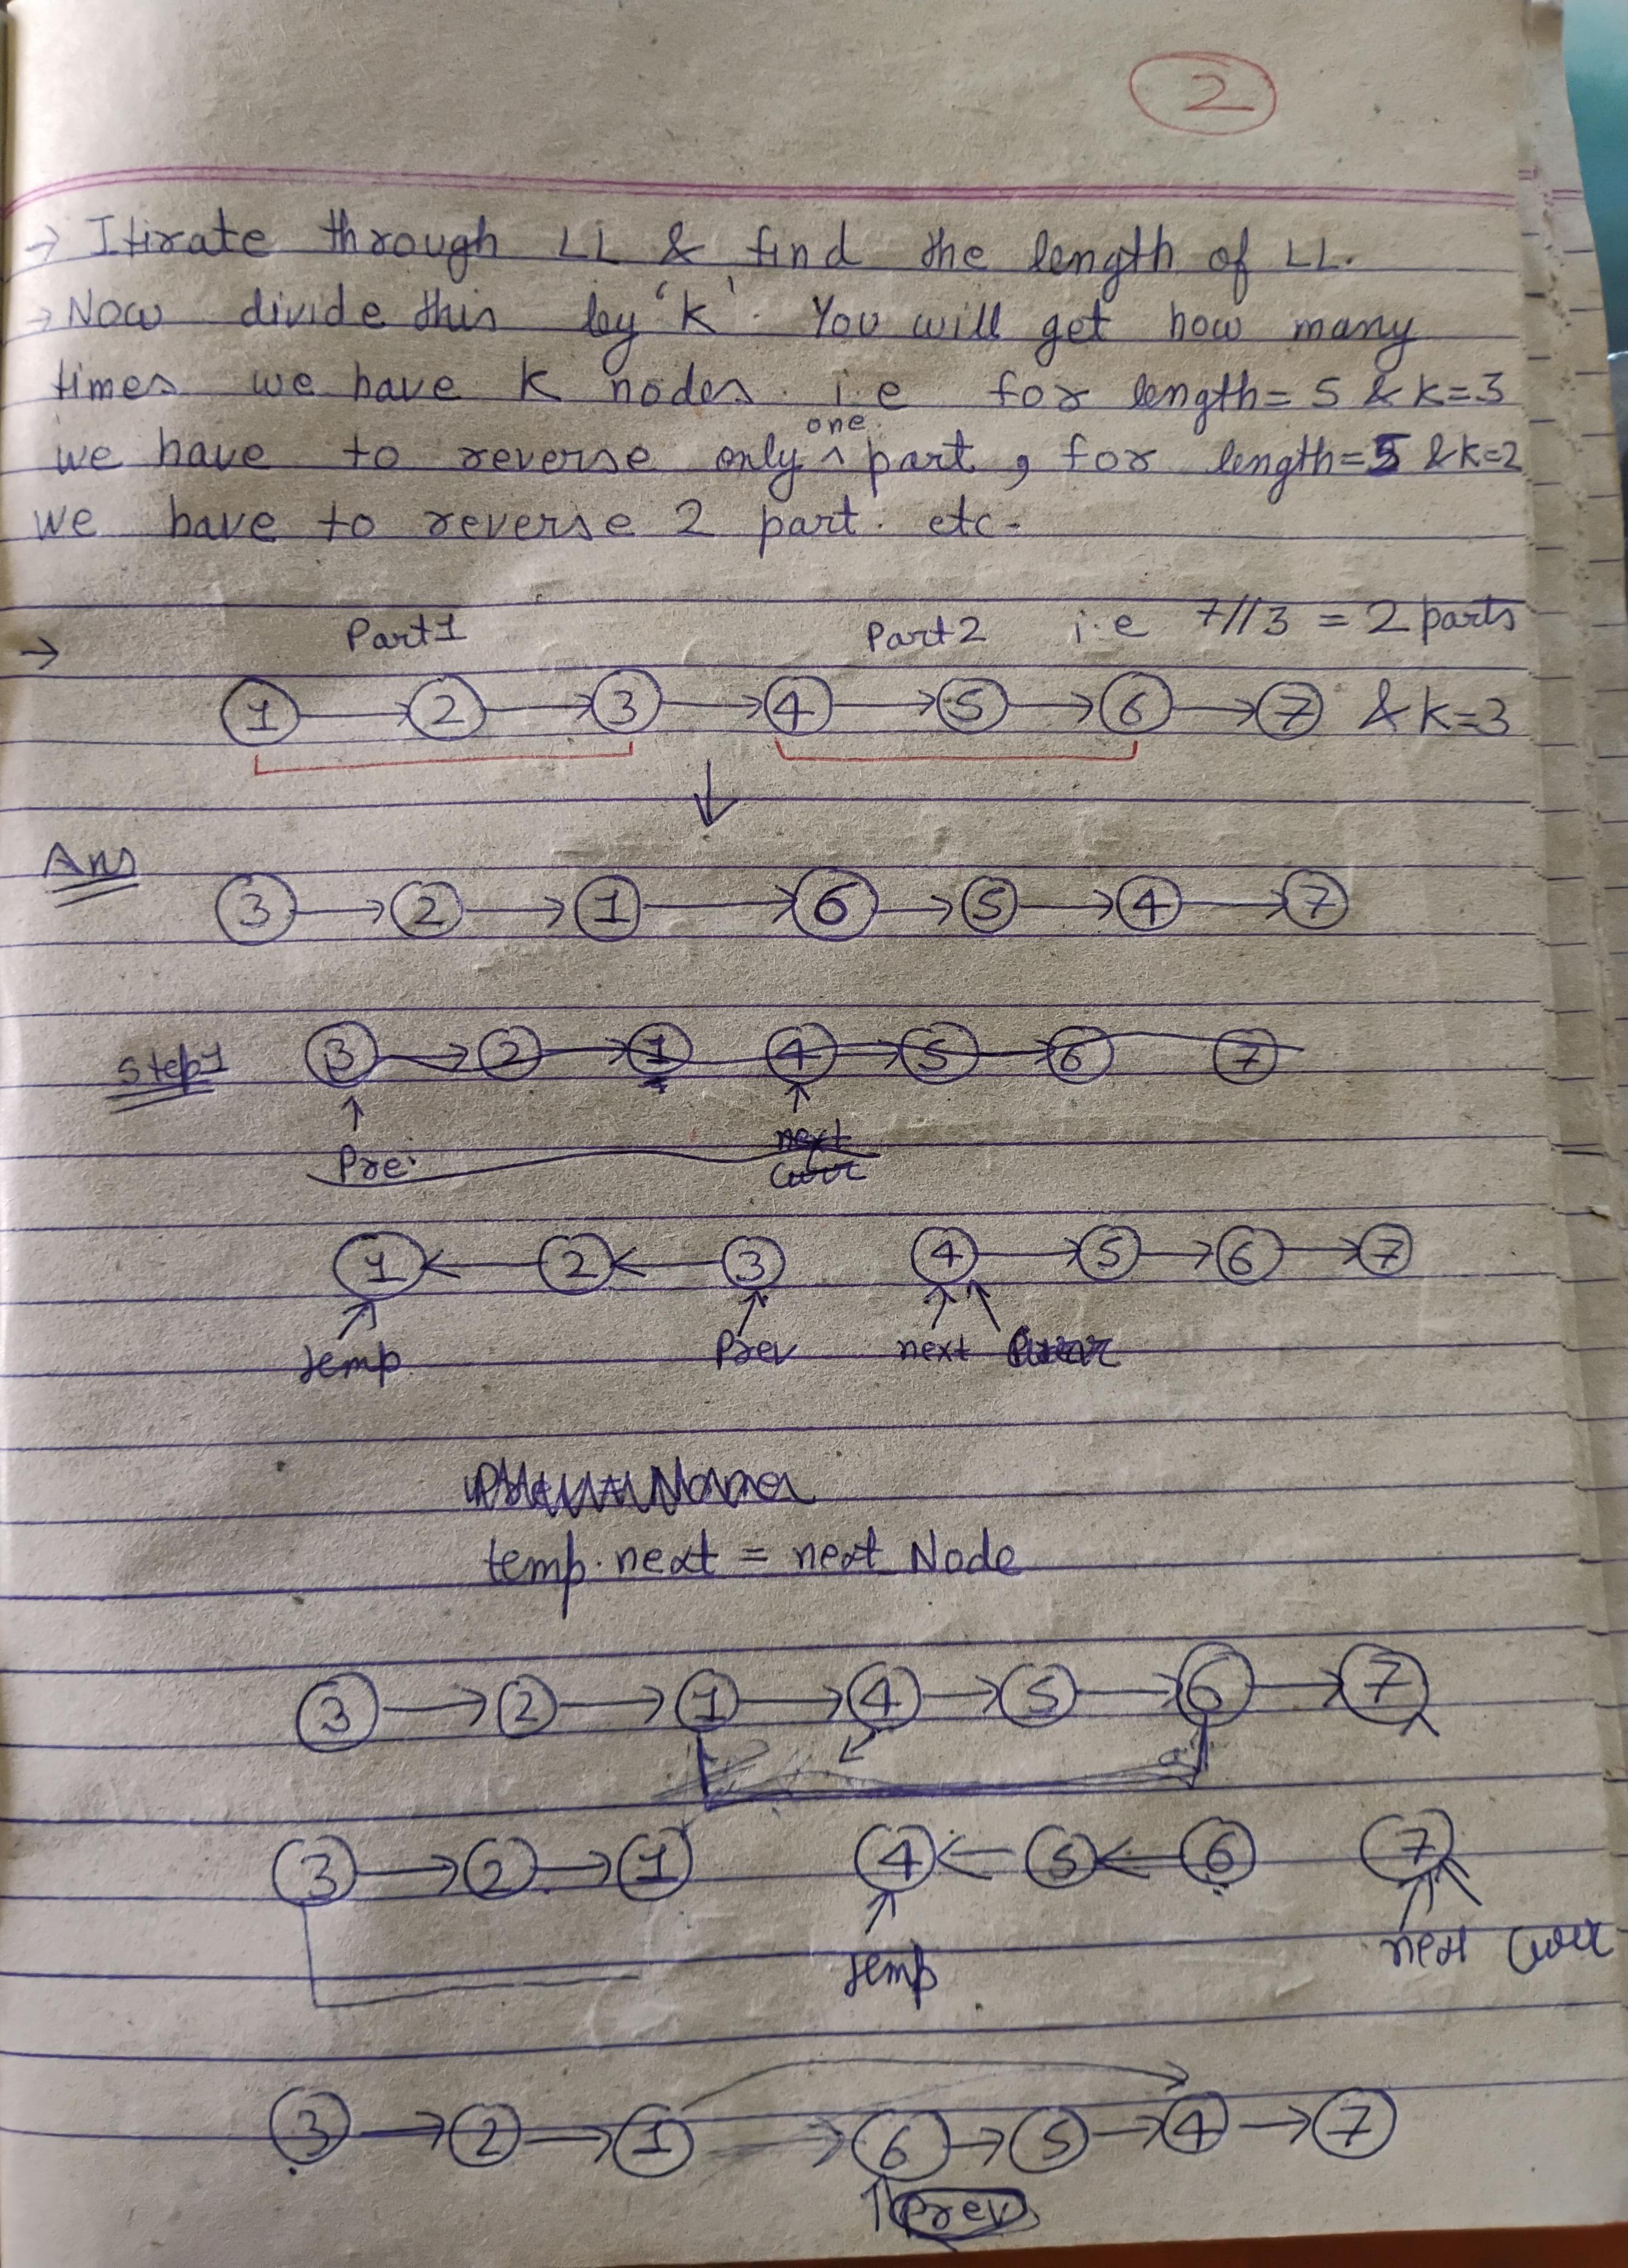 2
→ Itirate through LL & find the length of LL.
→ Now divide this by 'K'. You will get how many
times we have K nodes. i.e for length=5 & K=3
one
we have to reverse only ^ part, for length=5 & K=2
we have to reverse 2 part. etc.
→ Part1 Part2 i.e 7//3 = 2 parts
1 → 2 → 3 → 4 → 5 → 6 → 7 & K=3
↓
Ans
3 → 2 → 1 → 6 → 5 → 4 → 7
Step1 3 → 2 → 1 4 → 5 → 6 7
Pre. next
curr
1 ← 2 ← 3 4 → 5 → 6 → 7
temp Prev next
temp.next = next Node
3 → 2 → 1 → 4 → 5 → 6 → 7
3 → 2 → 1 4 ← 5 ← 6 7
temp next curr
3 → 2 → 1 → 6 → 5 → 4 → 7
Prev